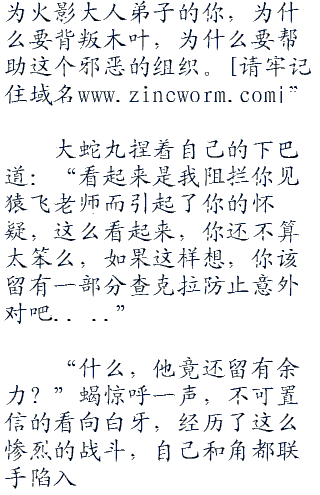 为火影大人弟子的你，为什
么要背叛木叶，为什么要帮
助这个邪恶的组织。[请牢记
住域名www.zincworm.com]”
大蛇丸捏着自己的下巴
道：“看起来是我阻拦你见
猿飞老师而引起了你的怀
疑，这么看起来，你还不算
太笨么，如果这样想，你该
留有一部分查克拉防止意外
对吧．．．．”
“什么，他竟还留有余
力？”蝎惊呼一声，不可置
信的看向白牙，经历了这么
惨烈的战斗，自己和角都联
手陷入